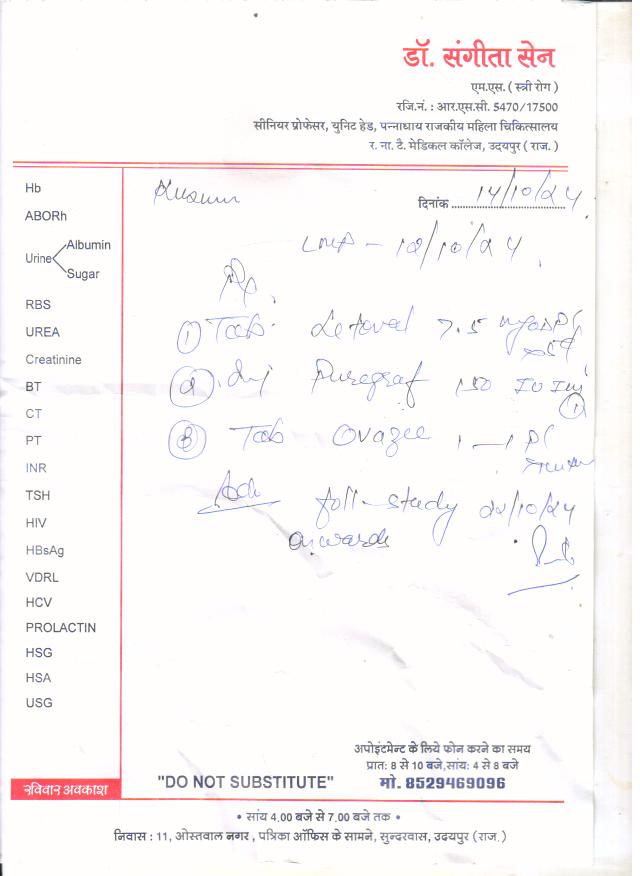 डॉ. संगीता सेन
एम.एस. ( स्त्री रोग )
रजि.नं. : आर.एस.सी. 5470/17500
सीनियर प्रोफेसर, युनिट हेड, पन्नाधाय राजकीय महिला चिकित्सालय
र. ना. टै. मेडिकल कॉलेज, उदयपुर ( राज. )
Kusum
दिनांक 14/10/24
LMP - 12/10/24
Rp.
① Tab. Letoval 7.5 mg
② . Inj Puregraf 150 IU Inj
①
③ Tab Ovazee 1 —1 PC
Adv foll-study 22/10/24
onwards
Hb
ABORh
Urine Albumin
Sugar
RBS
UREA
Creatinine
BT
CT
PT
INR
TSH
HIV
HBsAg
VDRL
HCV
PROLACTIN
HSG
HSA
USG
रविवार अवकाश
"DO NOT SUBSTITUTE"
अपोइंटमेन्ट के लिये फोन करने का समय
प्रात: 8 से 10 बजे,सांय: 4 से 8 बजे
मो. 8529469096
• सांय 4.00 बजे से 7.00 बजे तक •
निवास : 11, ओस्तवाल नगर , पत्रिका ऑफिस के सामने, सुन्दरवास, उदयपुर ( राज. )